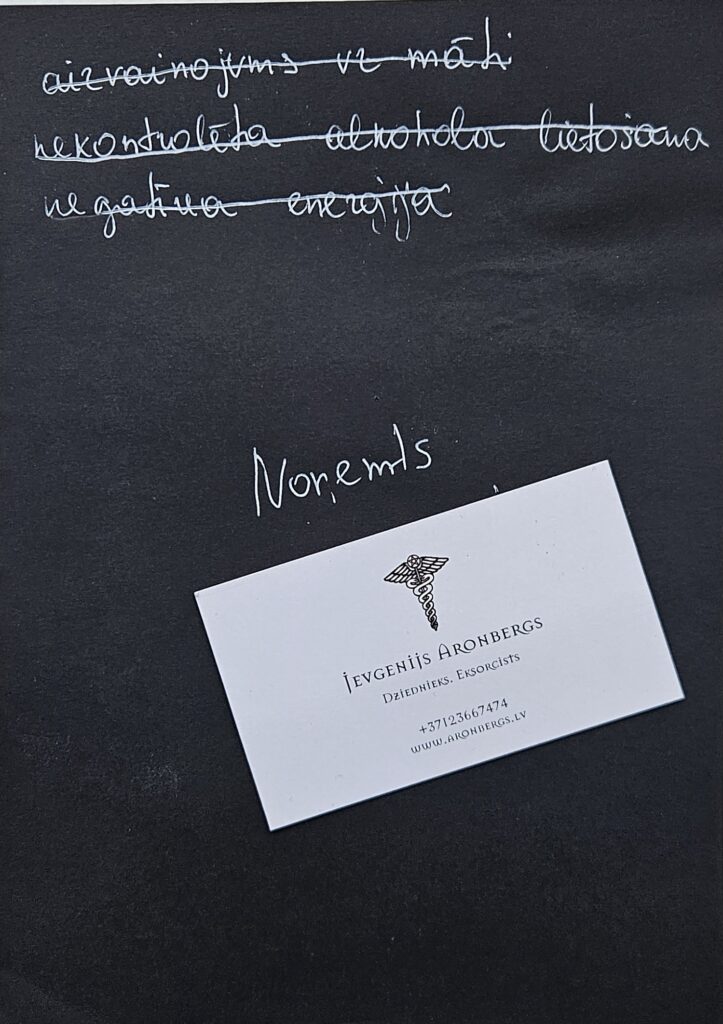 aizvainojums uz māti
nekontrolēta alkohola lietošana
negatīva enerģija
Noņemts
Jevgenijs Aronbergs
Dziednieks. Eksorcists
+37123667474
www.aronbergs.lv